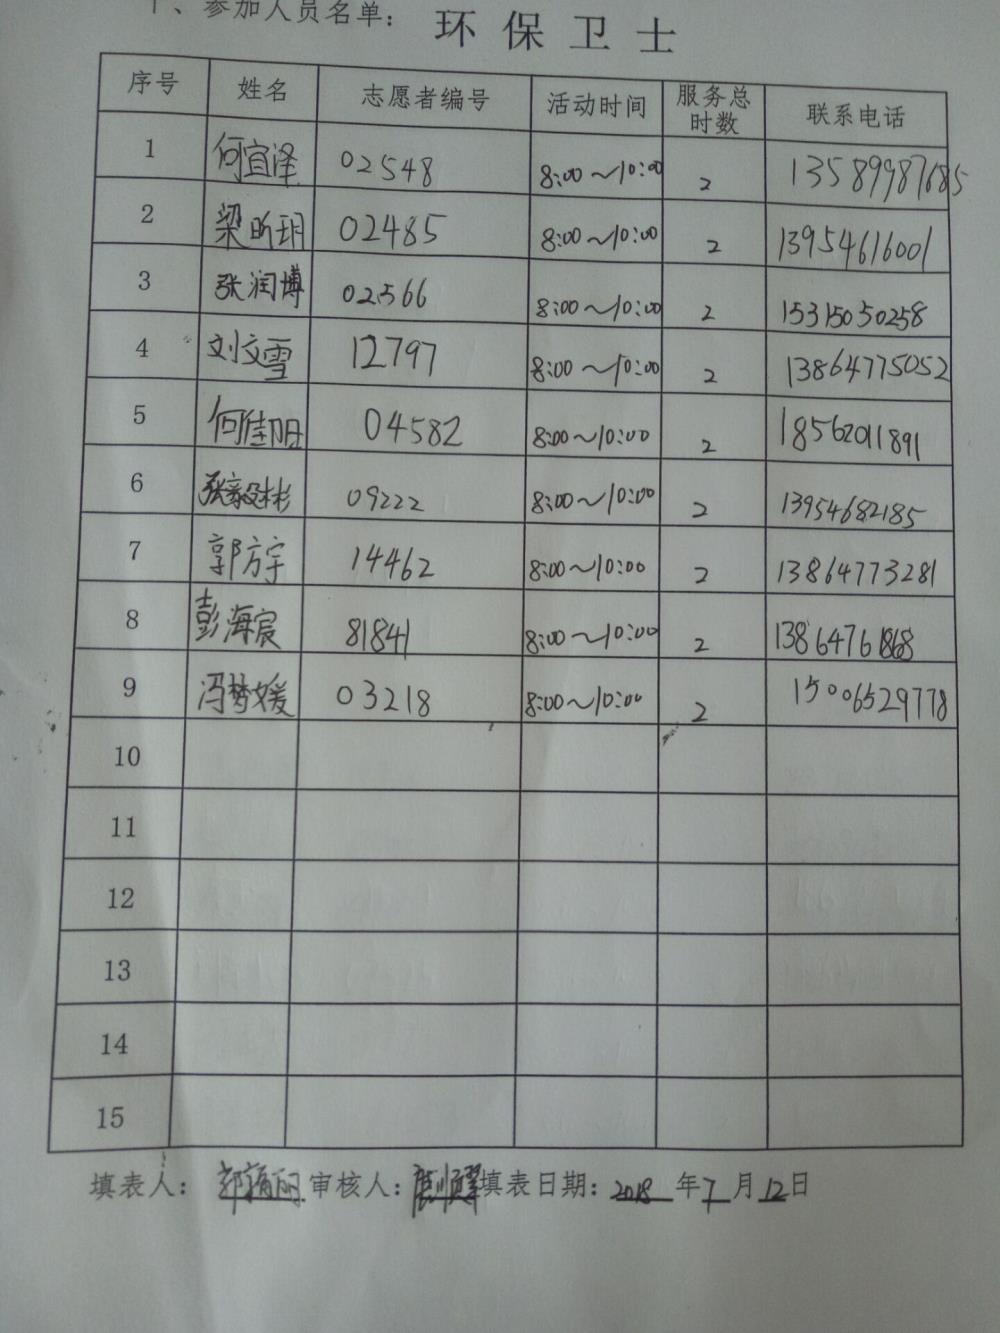 、参加人员名单：环保卫士
序号 姓名 志愿者编号 活动时间 服务总时数 联系电话
1 何宜泽 02548 8:00～10:00 2 13589987685
2 梁昕玥 02485 8:00～10:00 2 13954616001
3 张润博 02566 8:00～10:00 2 15315050258
4 刘文雪 12797 8:00～10:00 2 13864775052
5 何佳阳 04582 8:00～10:00 2 18562011891
6 张毅彬 09222 8:00～10:00 2 13954682185
7 郭方宇 14462 8:00～10:00 2 13864773281
8 彭海宸 81841 8:00～10:00 2 13864761868
9 冯梦媛 03218 8:00～10:00 2 15006529778
10
11
12
13
14
15
填表人： 审核人： 填表日期：2018年7月12日